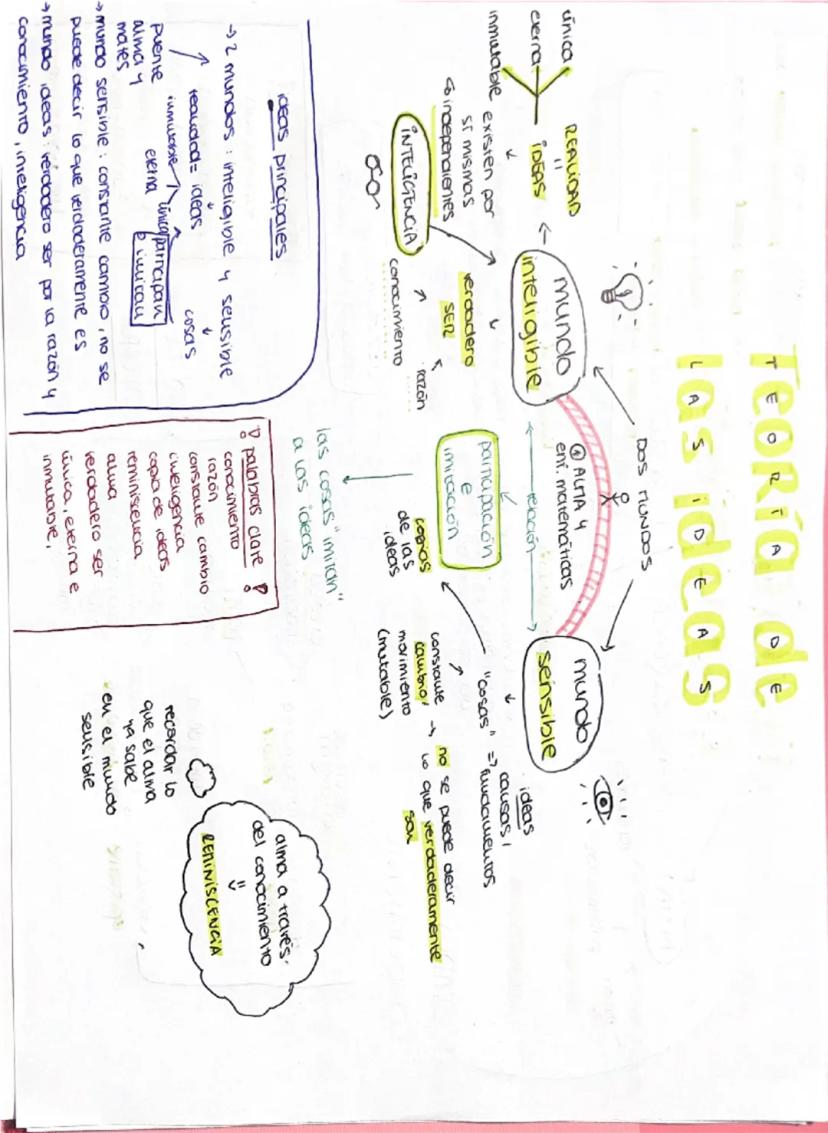 Teoría de
TEORIA DE
las ideas
LAS IDEAS
DOS MUNDOS
mundo
inteligible
mundo
sensible
ALMA y
ent. matemáticas
relación
REALIDAD
=
IDEAS
única
eterna
inmutable
existen por
sí mismas
independientes
verdadero
SER
INTELIGENCIA
conocimiento
razón
participación
e
imitación
copias
de las
ideas
las cosas "imitan"
a las ideas
"cosas" =>
ideas
causas /
fundamentos
constante
cambio /
movimiento
(mutable)
→ no se puede decir
lo que verdaderamente
son
ideas principales
→ 2 mundos: inteligible y sensible
realidad = ideas
cosas
puente
alma y
mates
inmutable
eterna
única
participan
imitan
→ mundo sensible: constante cambio, no se
puede decir lo que verdaderamente es
→ mundo ideas: verdadero ser por la razón y
conocimiento, inteligencia
! palabras clave !
conocimiento
razón
constante cambio
inteligencia
copia de ideas
reminiscencia
alma
verdadero ser
única, eterna e
inmutable,
alma a través
del conocimiento
=
REMINISCENCIA
recordar lo
que el alma
ya sabe
en el mundo
sensible